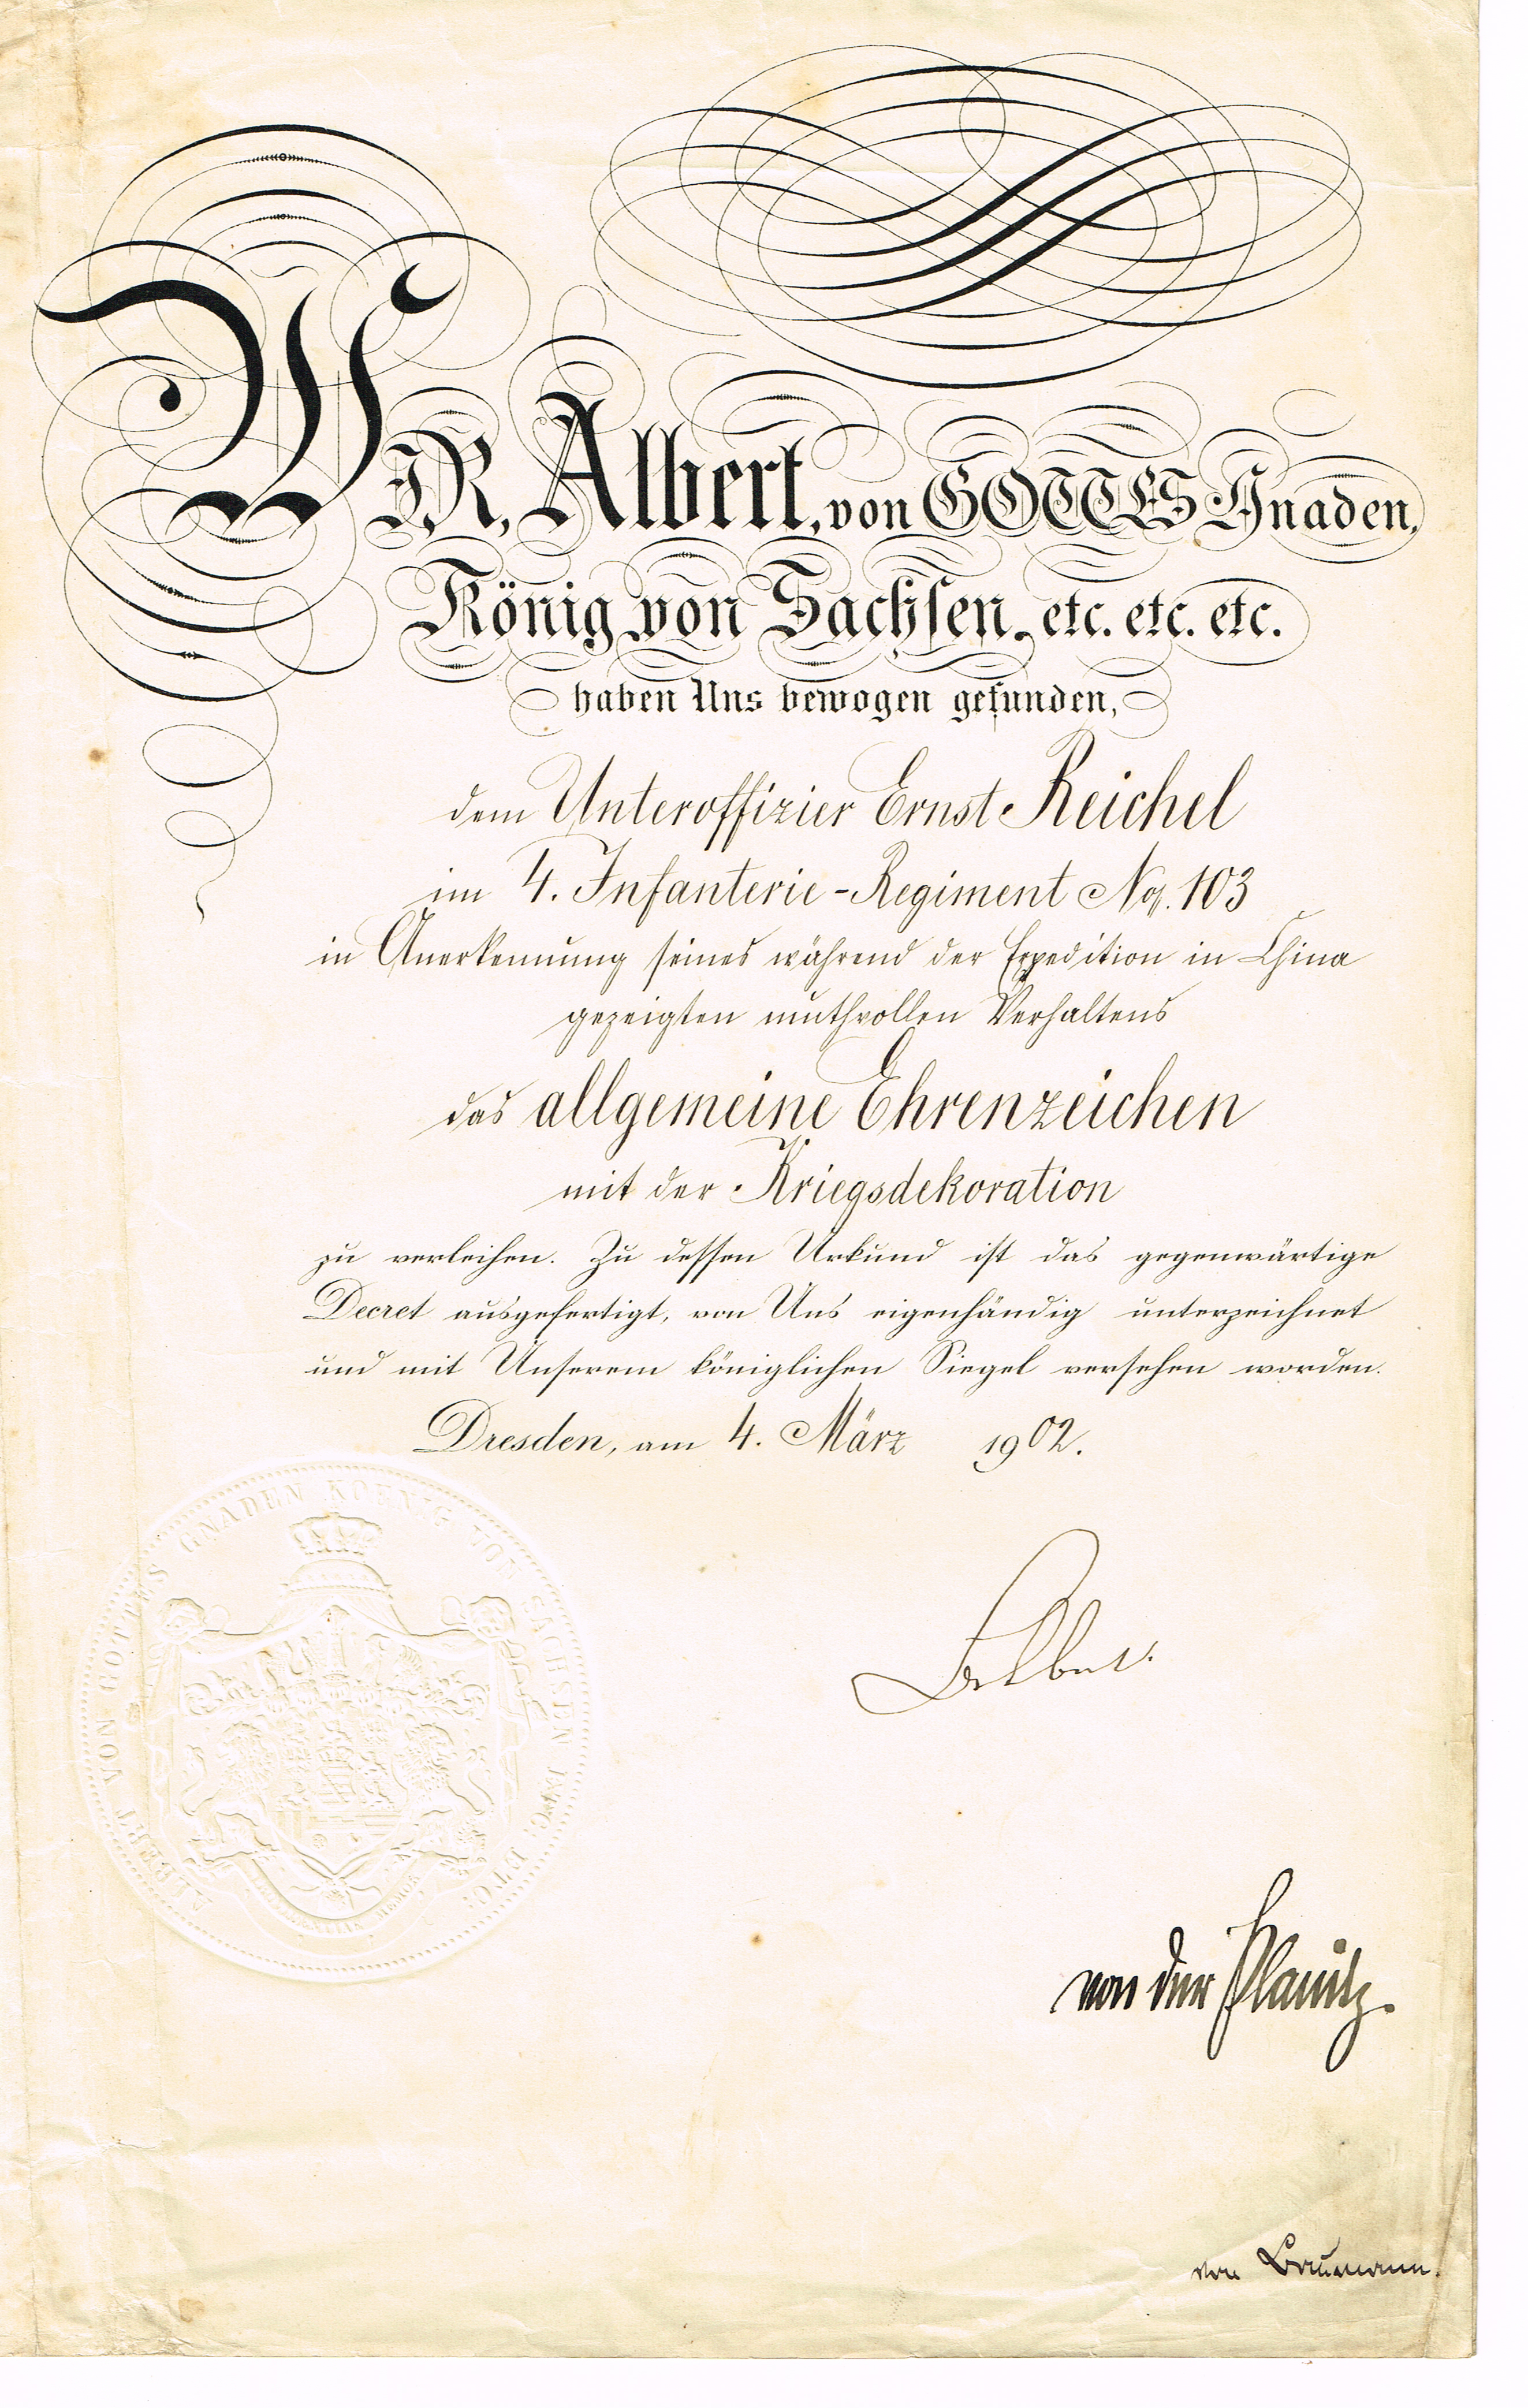 WIR, Albert, von GOTTES Gnaden,
König von Sachsen. etc. etc. etc.
haben Uns bewogen gefunden,
dem Unteroffizier Ernst Reichel
im 4. Infanterie-Regiment No. 103
in Anerkennung seines während der Expedition in China
gezeigten muthvollen Verhaltens
das allgemeine Ehrenzeichen
mit der Kriegsdekoration
zu verleihen. Zu dessen Urkund ist das gegenwärtige
Decret ausgefertigt, von Uns eigenhändig unterzeichnet
und mit Unserem königlichen Siegel versehen worden.
Dresden, am 4. März 1902.
ALBERT VON GOTTES GNADEN KOENIG VON SACHSEN ETC. ETC.
MEMOR
Albert.
von der Planitz.
von